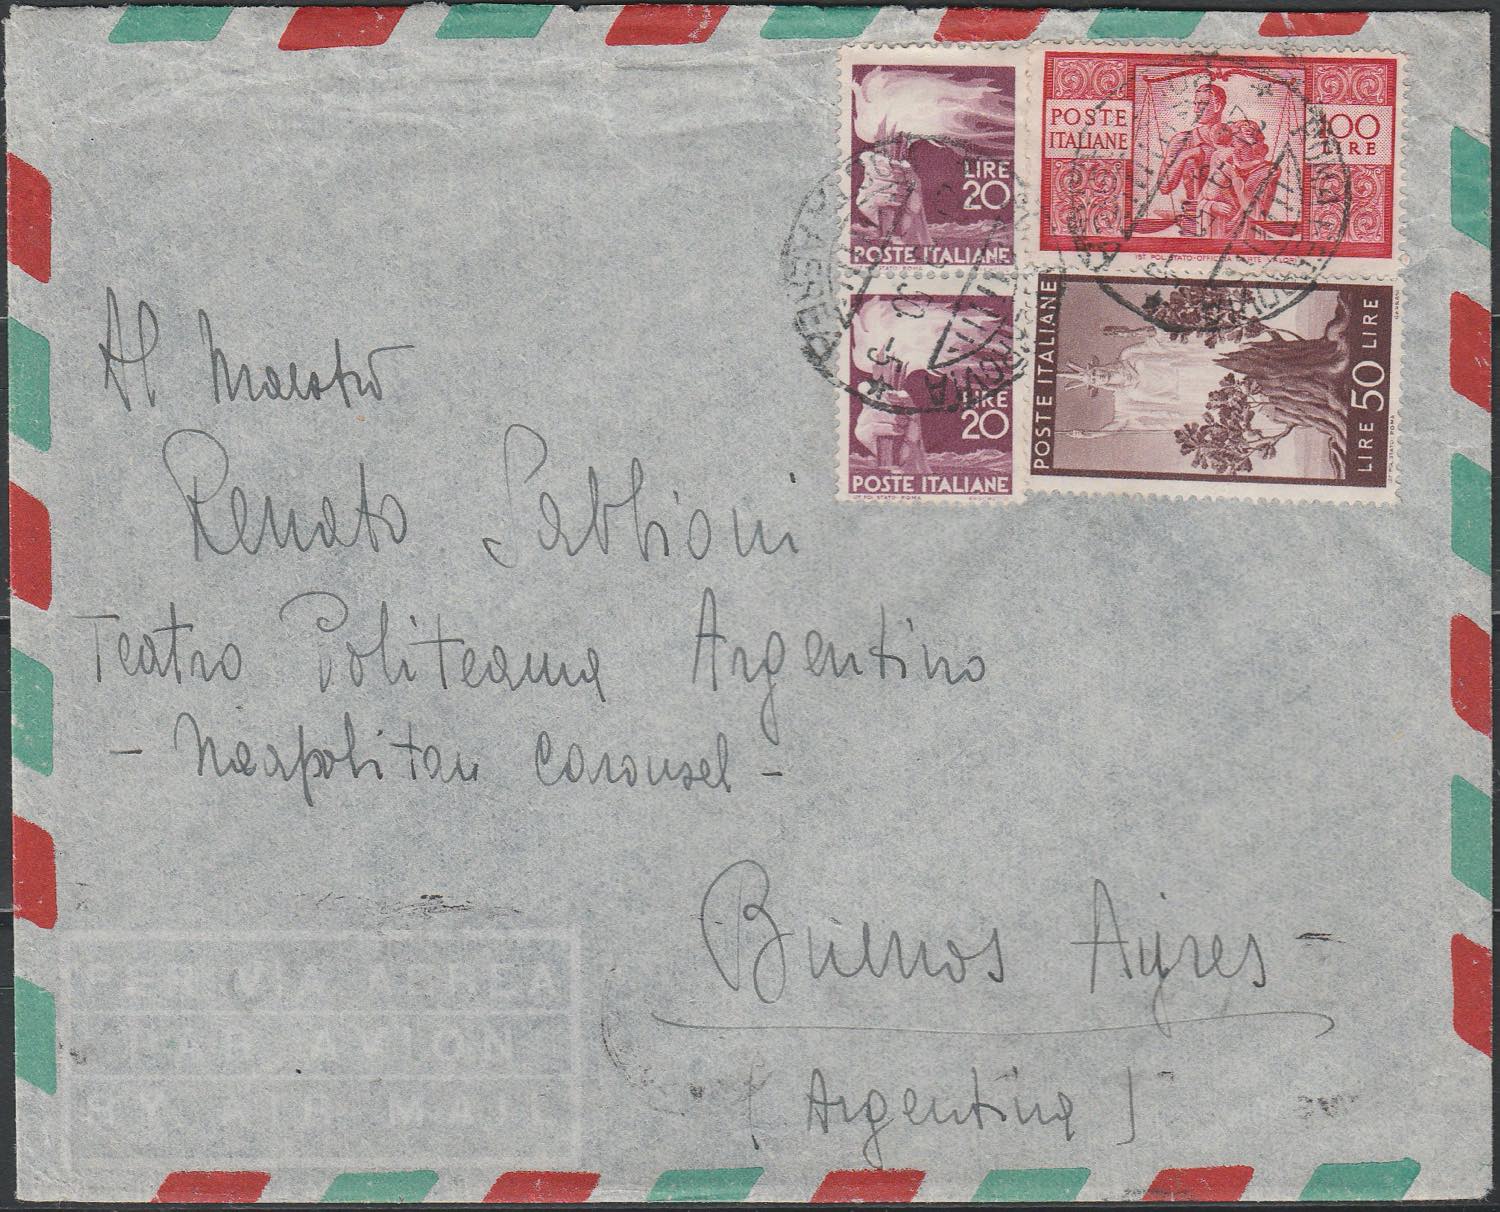 LIRE
20
POSTE ITALIANE
LIRE
20
POSTE ITALIANE
POSTE
ITALIANE
100
LIRE
POSTE ITALIANE
LIRE 50 LIRE
Al Maestro
Renato Sabbioni
Teatro Politeama Argentino
- Neapolitan Carousel -
Buenos Ayres -
(Argentina)
PER VIA AEREA
PAR AVION
BY AIR MAIL